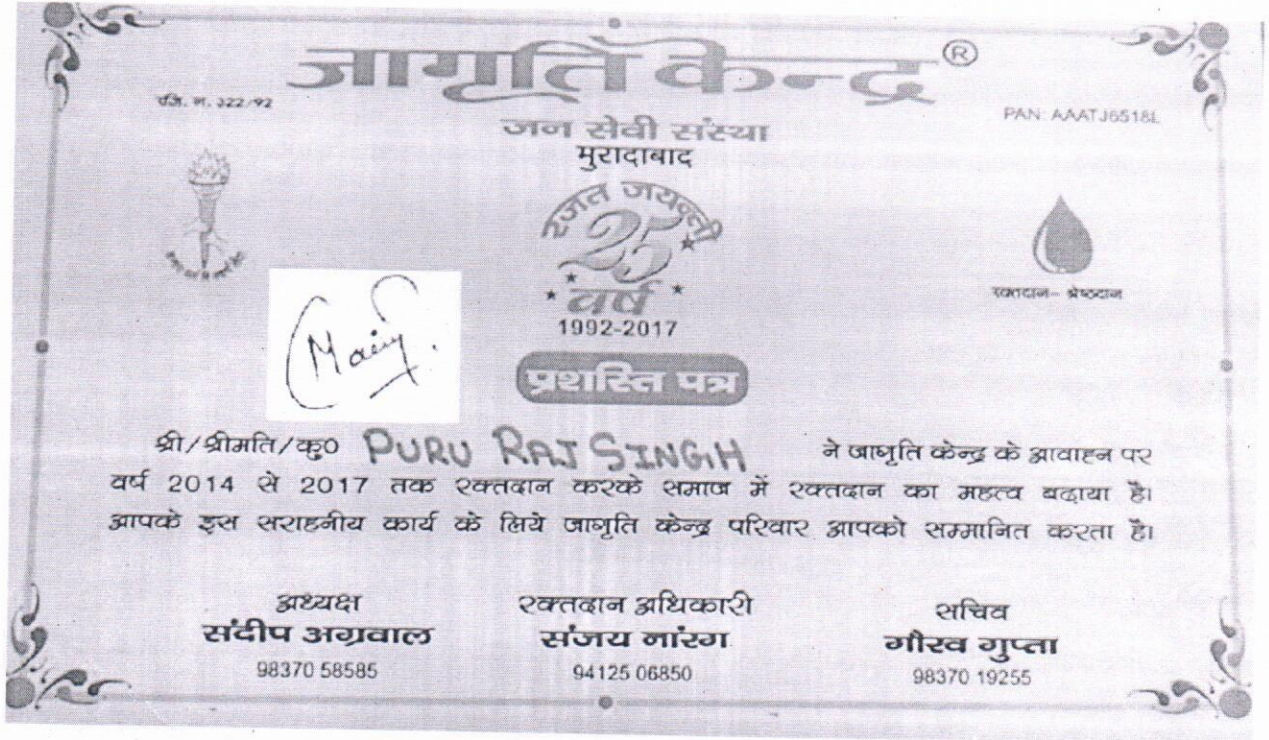 जागृति केन्द्र ®
रजि. न. 322/92
PAN: AAATJ6518L
जन सेवी संस्था
मुरादाबाद
रजत जयन्ती
25
वर्ष
1992-2017
रक्तदान- श्रेष्ठदान
प्रशस्ति पत्र
श्री/श्रीमति/कु0 PURU RAJ SINGH ने जागृति केन्द्र के आवाहन पर
वर्ष 2014 से 2017 तक रक्तदान करके समाज में रक्तदान का महत्व बढ़ाया है।
आपके इस सराहनीय कार्य के लिये जागृति केन्द्र परिवार आपको सम्मानित करता है।
अध्यक्ष रक्तदान अधिकारी सचिव
संदीप अग्रवाल संजय नारंग गौरव गुप्ता
98370 58585 94125 06850 98370 19255